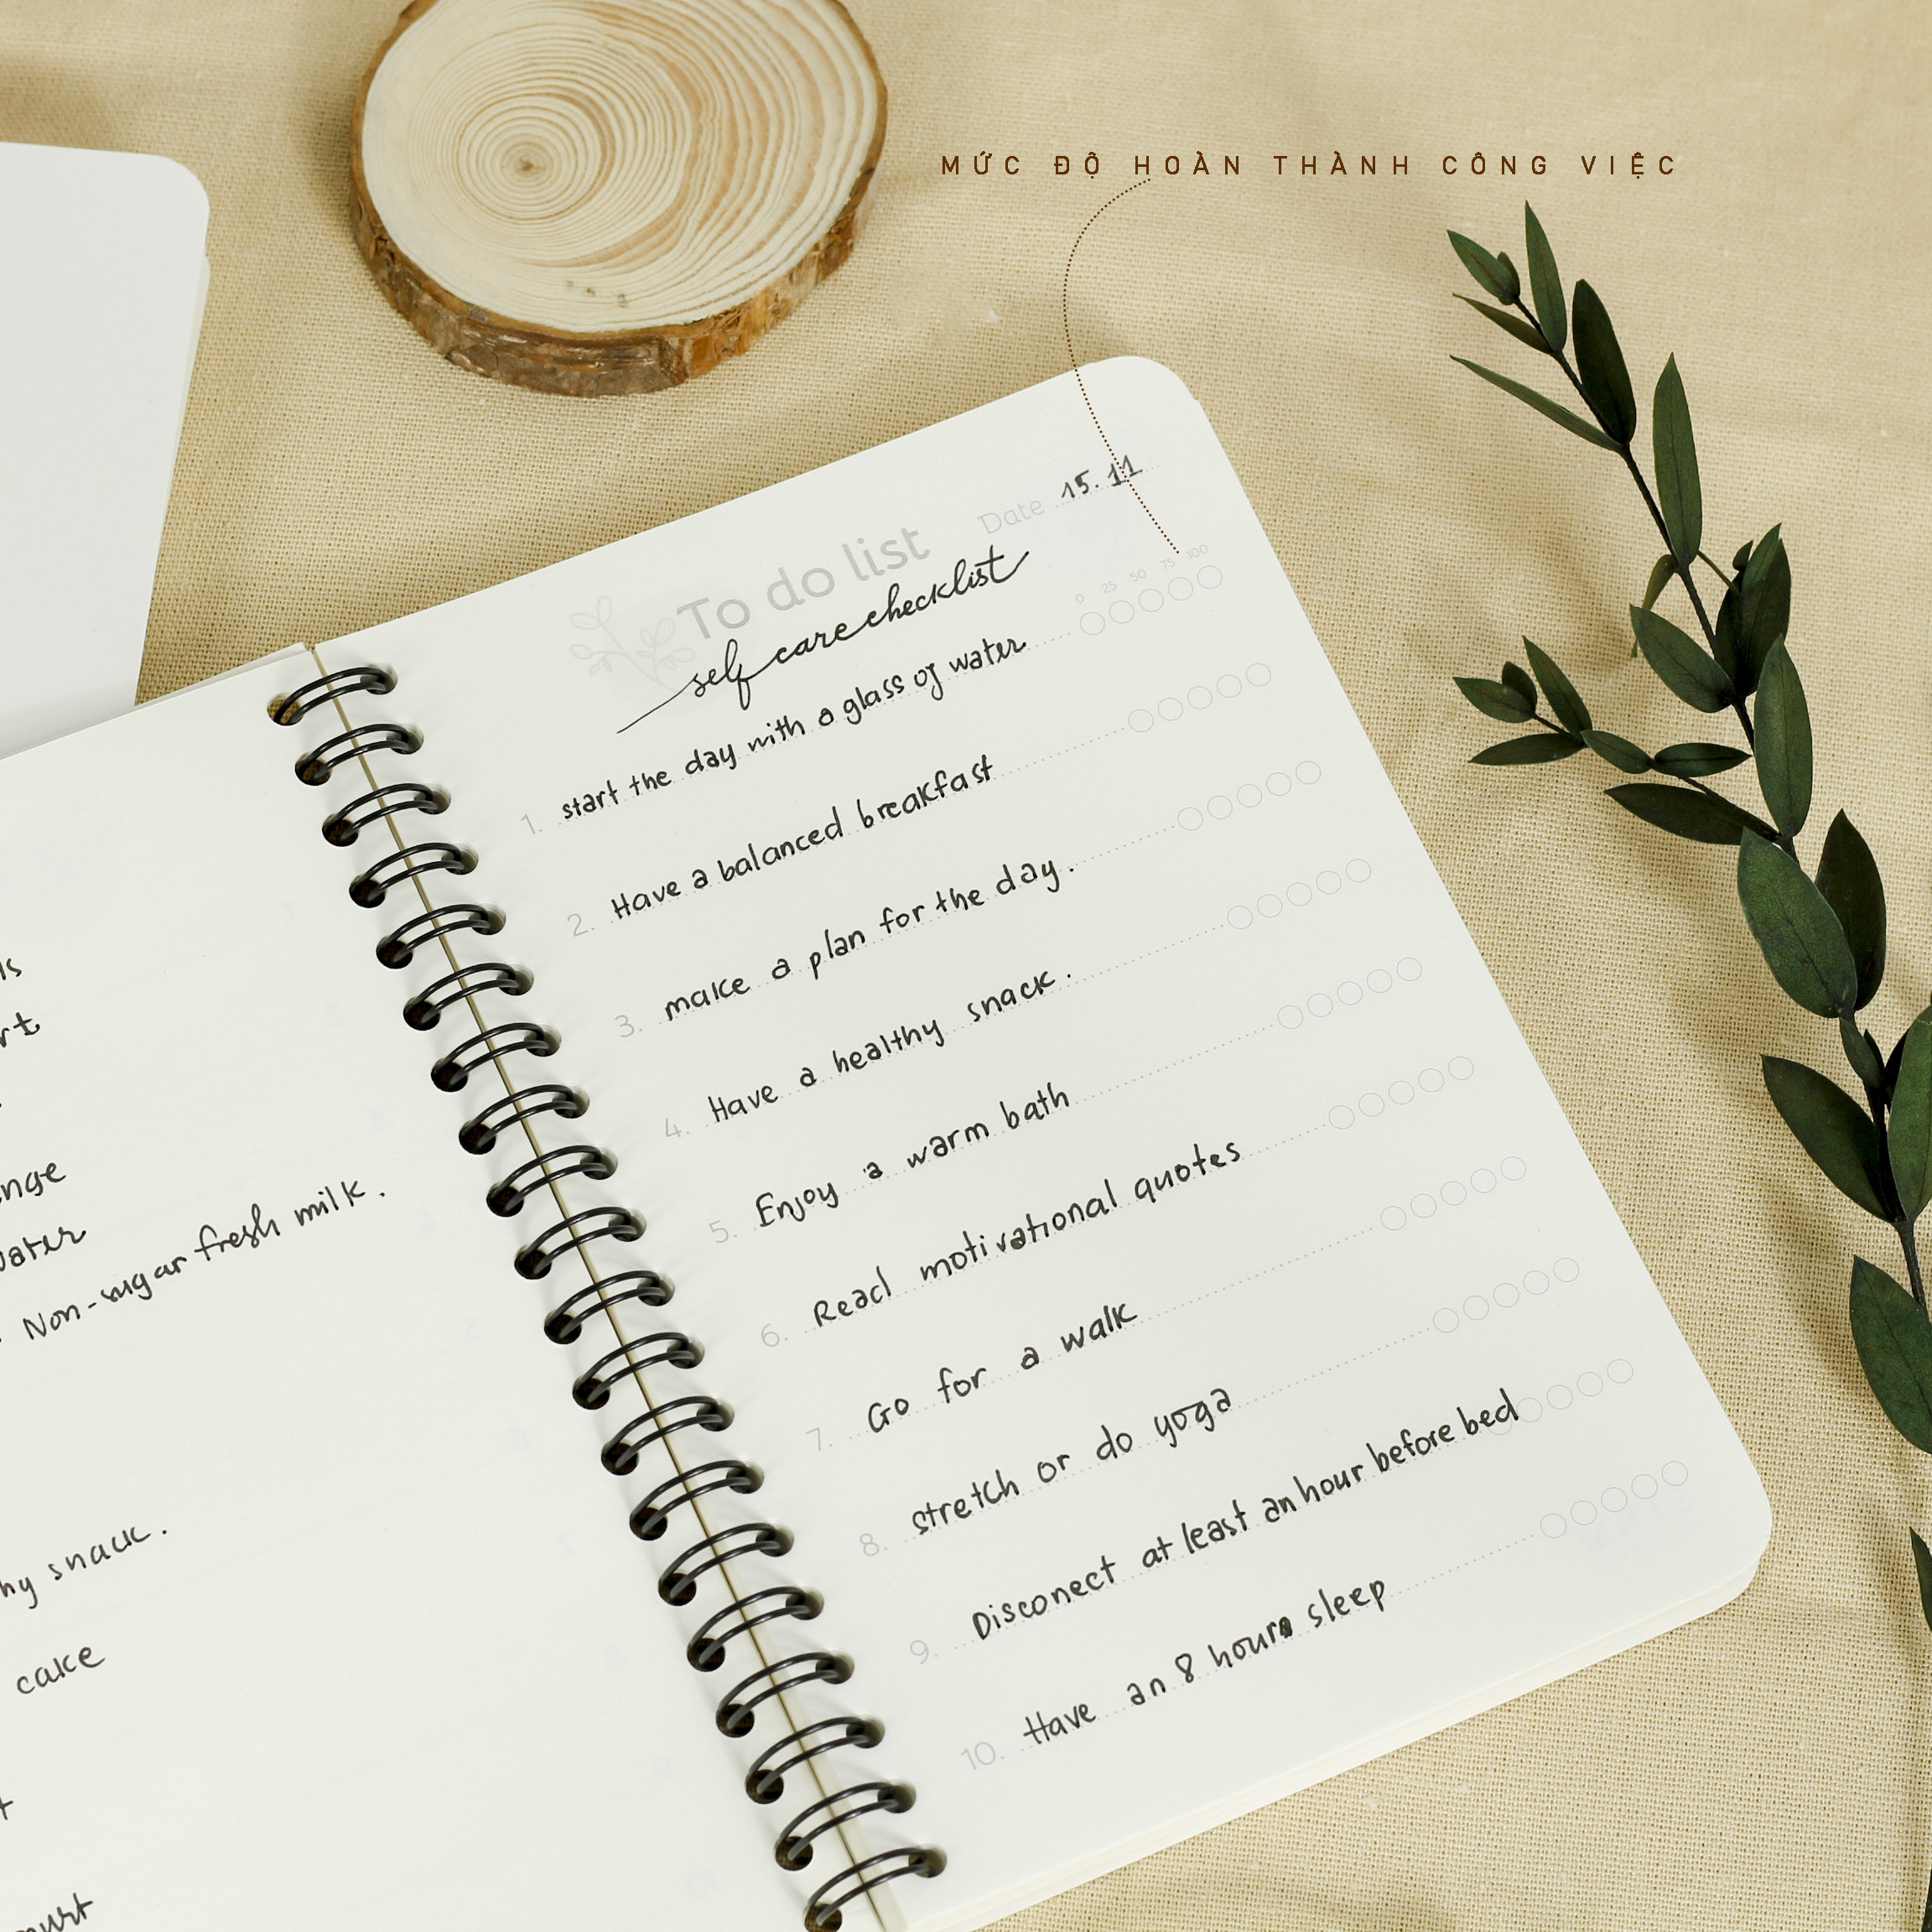 MỨC ĐỘ HOÀN THÀNH CÔNG VIỆC
To do list
Date 15.11
self care checklist
0 25 50 75 100
1. start the day with a glass of water
2. Have a balanced breakfast
3. make a plan for the day.
4. Have a healthy snack.
5. Enjoy a warm bath
6. Read motivational quotes
7. Go for a walk
8. stretch or do yoga
9. Disconect at least an hour before bed
10. Have an 8 hours sleep
Non-sugar fresh milk.
snack.
cake